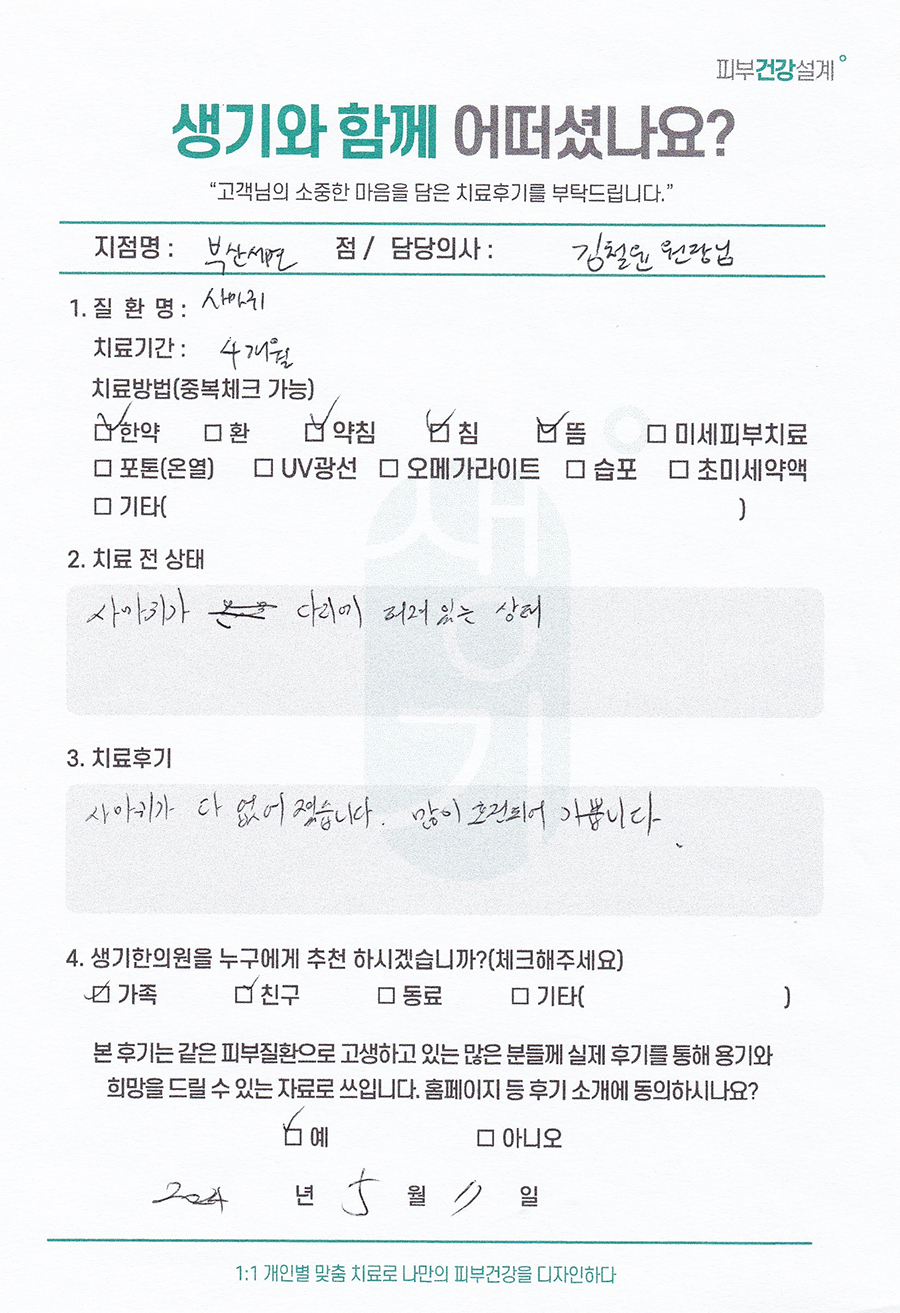 피부건강설계
생기와 함께 어떠셨나요?
“고객님의 소중한 마음을 담은 치료후기를 부탁드립니다.”
지점명 : 부산서면 점 / 담당의사 : 김철윤 원장님
1. 질 환 명 : 사마귀
치료기간 : 4개월
치료방법(중복체크 가능)
☑ 한약 □ 환 ☑ 약침 ☑ 침 ☑ 뜸 □ 미세피부치료
□ 포톤(온열) □ UV광선 □ 오메가라이트 □ 습포 □ 초미세약액
□ 기타( )
2. 치료 전 상태
사마귀가 다리에 퍼져 있는 상태
3. 치료후기
사마귀가 다 없어졌습니다. 많이 호전되어 기쁩니다.
4. 생기한의원을 누구에게 추천 하시겠습니까?(체크해주세요)
☑ 가족 ☑ 친구 □ 동료 □ 기타( )
본 후기는 같은 피부질환으로 고생하고 있는 많은 분들께 실제 후기를 통해 용기와
희망을 드릴 수 있는 자료로 쓰입니다. 홈페이지 등 후기 소개에 동의하시나요?
☑ 예 □ 아니오
2024 년 5 월 11 일
1:1 개인별 맞춤 치료로 나만의 피부건강을 디자인하다
생기